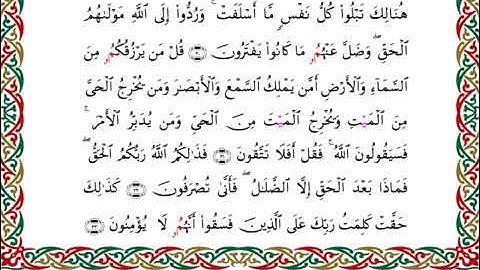 هُنَالِكَ تَبْلُوا۟ كُلُّ نَفْسٍ مَّا أَسْلَفَتْ ۚ وَرُدُّوا۟ إِلَى ٱللَّهِ مَوْلَىٰهُمُ
ٱلْحَقِّ ۖ وَضَلَّ عَنْهُمُۥ مَا كَانُوا۟ يَفْتَرُونَ ۝٣٠ قُلْ مَن يَرْزُقُكُمُۥ مِنَ
ٱلسَّمَآءِ وَٱلْأَرْضِ أَمَّن يَمْلِكُ ٱلسَّمْعَ وَٱلْأَبْصَٰرَ وَمَن يُخْرِجُ ٱلْحَىَّ
مِنَ ٱلْمَيْتِ وَيُخْرِجُ ٱلْمَيْتَ مِنَ ٱلْحَىِّ وَمَن يُدَبِّرُ ٱلْأَمْرَ ۚ
فَسَيَقُولُونَ ٱللَّهُ ۚ فَقُلْ أَفَلَا تَتَّقُونَ ۝٣١ فَذَٰلِكُمُ ٱللَّهُ رَبُّكُمُ ٱلْحَقُّ ۖ
فَمَاذَا بَعْدَ ٱلْحَقِّ إِلَّا ٱلضَّلَٰلُ ۖ فَأَنَّىٰ تُصْرَفُونَ ۝٣٢ كَذَٰلِكَ
حَقَّتْ كَلِمَتُ رَبِّكَ عَلَى ٱلَّذِينَ فَسَقُوٓا۟ أَنَّهُمُۥ لَا يُؤْمِنُونَ ۝٣٣